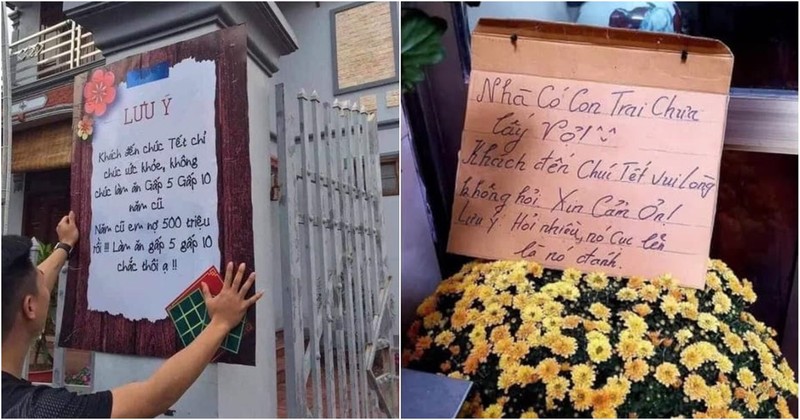 LƯU Ý
Khách đến chúc Tết chỉ
chúc sức khỏe, không
chúc làm ăn Gấp 5 Gấp 10
năm cũ
Năm cũ em nợ 500 triệu
rồi !!! Làm ăn gấp 5 gấp 10
chắc thôi ạ !!
Nhà Có Con Trai Chưa
lấy Vợ!^^
Khách đến Chúc Tết Vui Lòng
không hỏi Xin Cảm Ơn!
Lưu Ý Hỏi nhiều, nó Cục lên
là nó đánh.